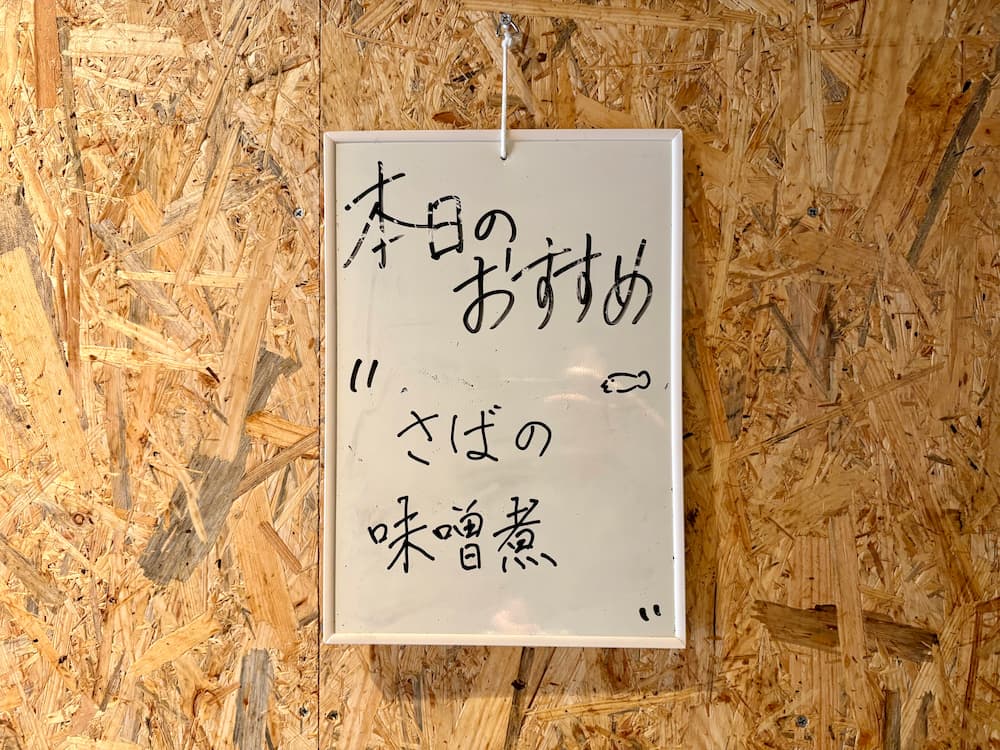 本日の
おすすめ
"さばの
味噌煮"